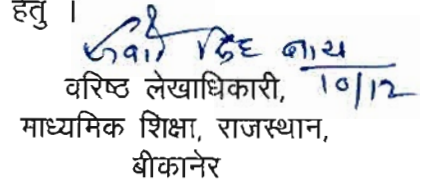 हेतु ।
10/12
वरिष्ठ लेखाधिकारी,
माध्यमिक शिक्षा, राजस्थान,
बीकानेर